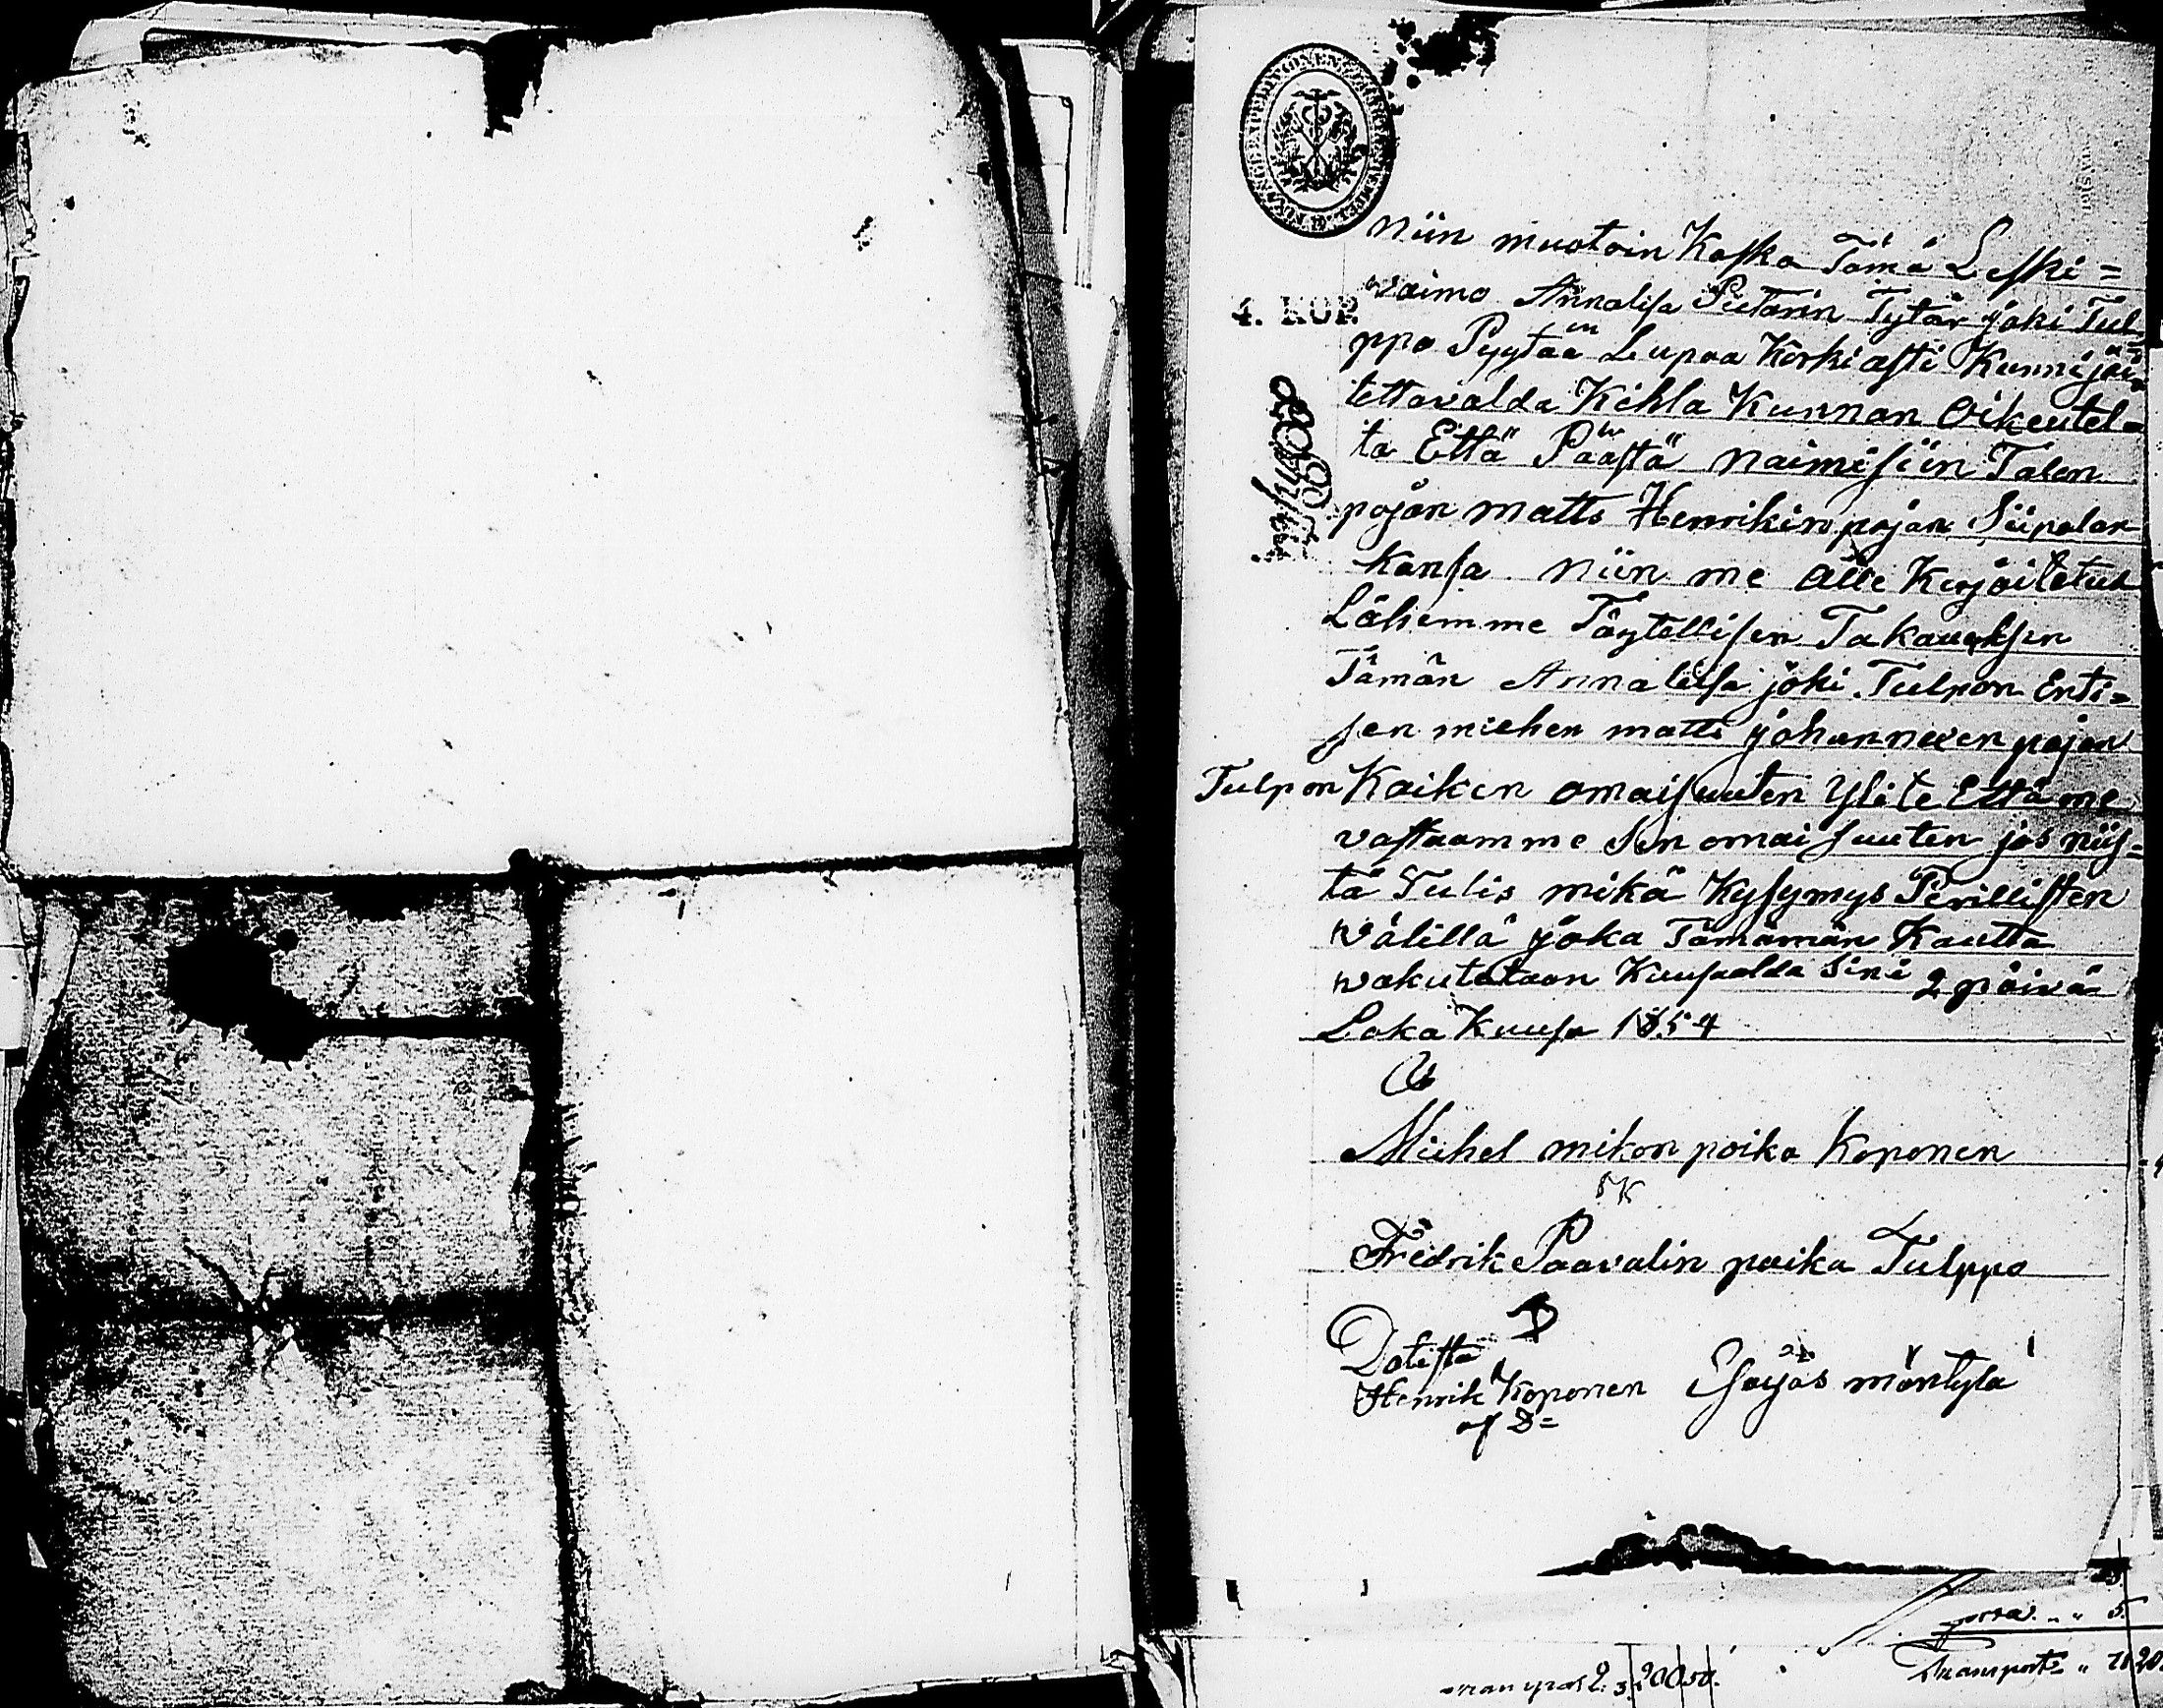 4. KOP.
Niin muotoin Koska Tämä Leski=
waimo Annalisa Pietarin Tytär joki Tul=
ppo Pyytää Lupaa Korkiasti Kunnijoi=
tettavalda Kihla Kunnan Oikeutel=
ta Että Päästä naimisiin Talon
pojan matts Henrikin pojan Siipolan
kansa. Niin me alle Kirjoitetut
Lähemme Täytellisen Takauksen
Tämän Annaliisa joki Tulpon Enti=
sen miehen matts johannexen pojan
Tulpon Kaiken omaisuuten Ylite Että me
vastaamme Sen omaisuuten jos niis=
tä Tulis mikä Kysymys Perillisten
wälillä joka Tämämän Kautta
wakutetaan Kuusaalda Sinä 2 päivä
Loka Kuusa 1854
Michel mikon poika Koponen
Fredrik Paavalin poika Tulppo
Dotista
Henrik Koponen Esajas mäntylä
Transport